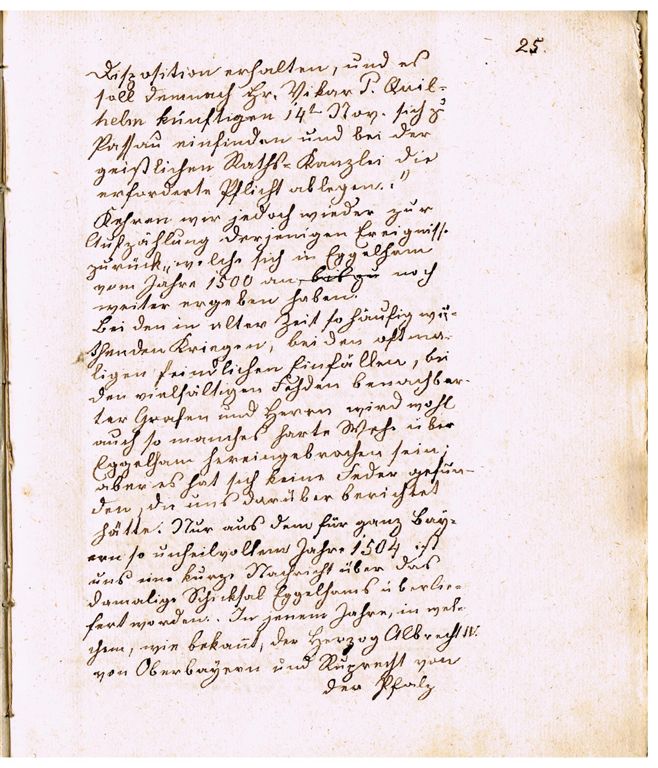 25.
Disposition erhalten, und es
soll demnach Hr. Vikar P. Quil-
helm künftigen 14t Nov. sich zu
Passau einfinden und bei der
geistlichen Raths-Kanzlei die
erforderte Pflicht ablegen."
Kehren wir jedoch wieder zur
Aufzählung derjenigen Ereignisse
zurück, welche sich in Eggelham
vom Jahre 1500 an, bis zu noch
weiter ergeben haben.
Bei den in alter Zeit so häufig wü-
thenden Kriegen, bei den oftma-
ligen feindlichen Einfällen, bei
den vielfältigen Fehden benachbar-
ter Grafen und Herrn wird wohl
auch so manches harte Wehe über
Eggelham hereingebrochen sein;
aber es hat sich keine Feder gefun-
den, die uns darüber berichtet
hätte. Nur aus dem für ganz Bay-
ern so unheilvollem Jahre 1504 ist
uns eine kurze Nachricht über das
damalige Schicksal Eggelhams überlie-
fert worden. In jenem Jahre, in wel-
chem, wie bekannt, der Herzog Albrecht IV.
von Oberbayern und Ruprecht von
der Pfalz